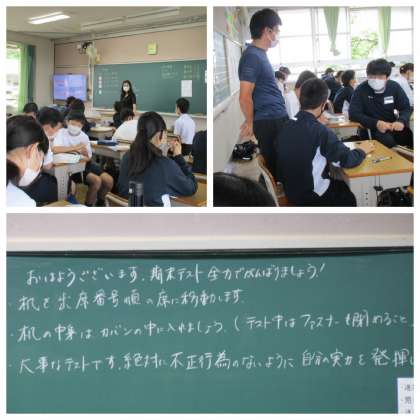 おはようございます。期末テスト全力でがんばりましょう!
・机を出席番号順の席に移動します。
・机の中身はカバンの中に入れましょう。(テスト中はファスナーも閉めること
・大事なテストです。絶対に不正行為のないように自分の実力を発揮し